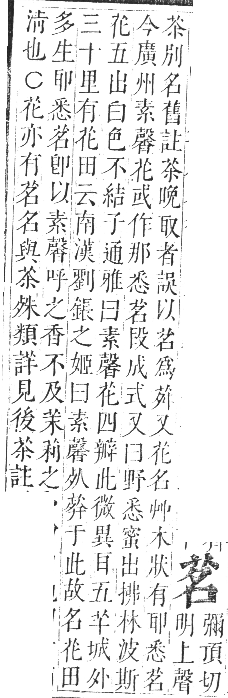 茗
彌頂切
明上聲
茶別名舊註茶晚取者誤以茗爲荈又花名艸木狀有耶悉茗
今廣州素馨花或作那悉茗段成式又曰野悉蜜出拂林波斯
花五出白色不結子通雅曰素馨花四瓣此微異且五羊城外
三十里有花田云南漢劉鋹之姬曰素馨死葬于此故名花田
多生耶悉茗卽以素馨呼之香不及茉莉之
淸也○花亦有茗名與茶殊類詳見後茶註